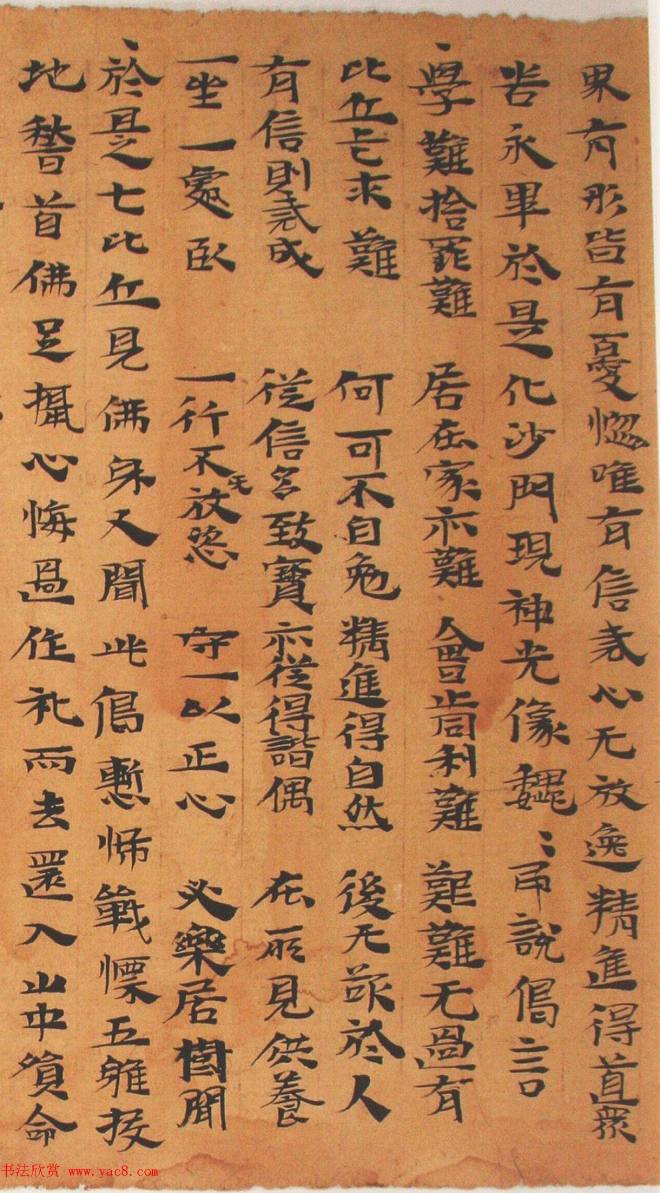 界有形皆有憂惱唯有信戒心无放逸精進得道眾
苦永畢於是化沙門現神光像魏〻即說偈言
、學難捨罪難　居在家亦難　會止同利難　艱難无過有
比丘乞求難　何可不自勉　精進得自然　後无欲於人
有信則戒成　從信多致寶　亦從得諧偶　在所見供養
一坐一處臥　一行不无放恣　守一以正心　必樂居樹間
、於是七比丘見佛身又聞此偈慙怖戰慄五體投
地稽首佛足攝心悔過作礼而去還入山中殞命
书法欣赏 www.yac8.com